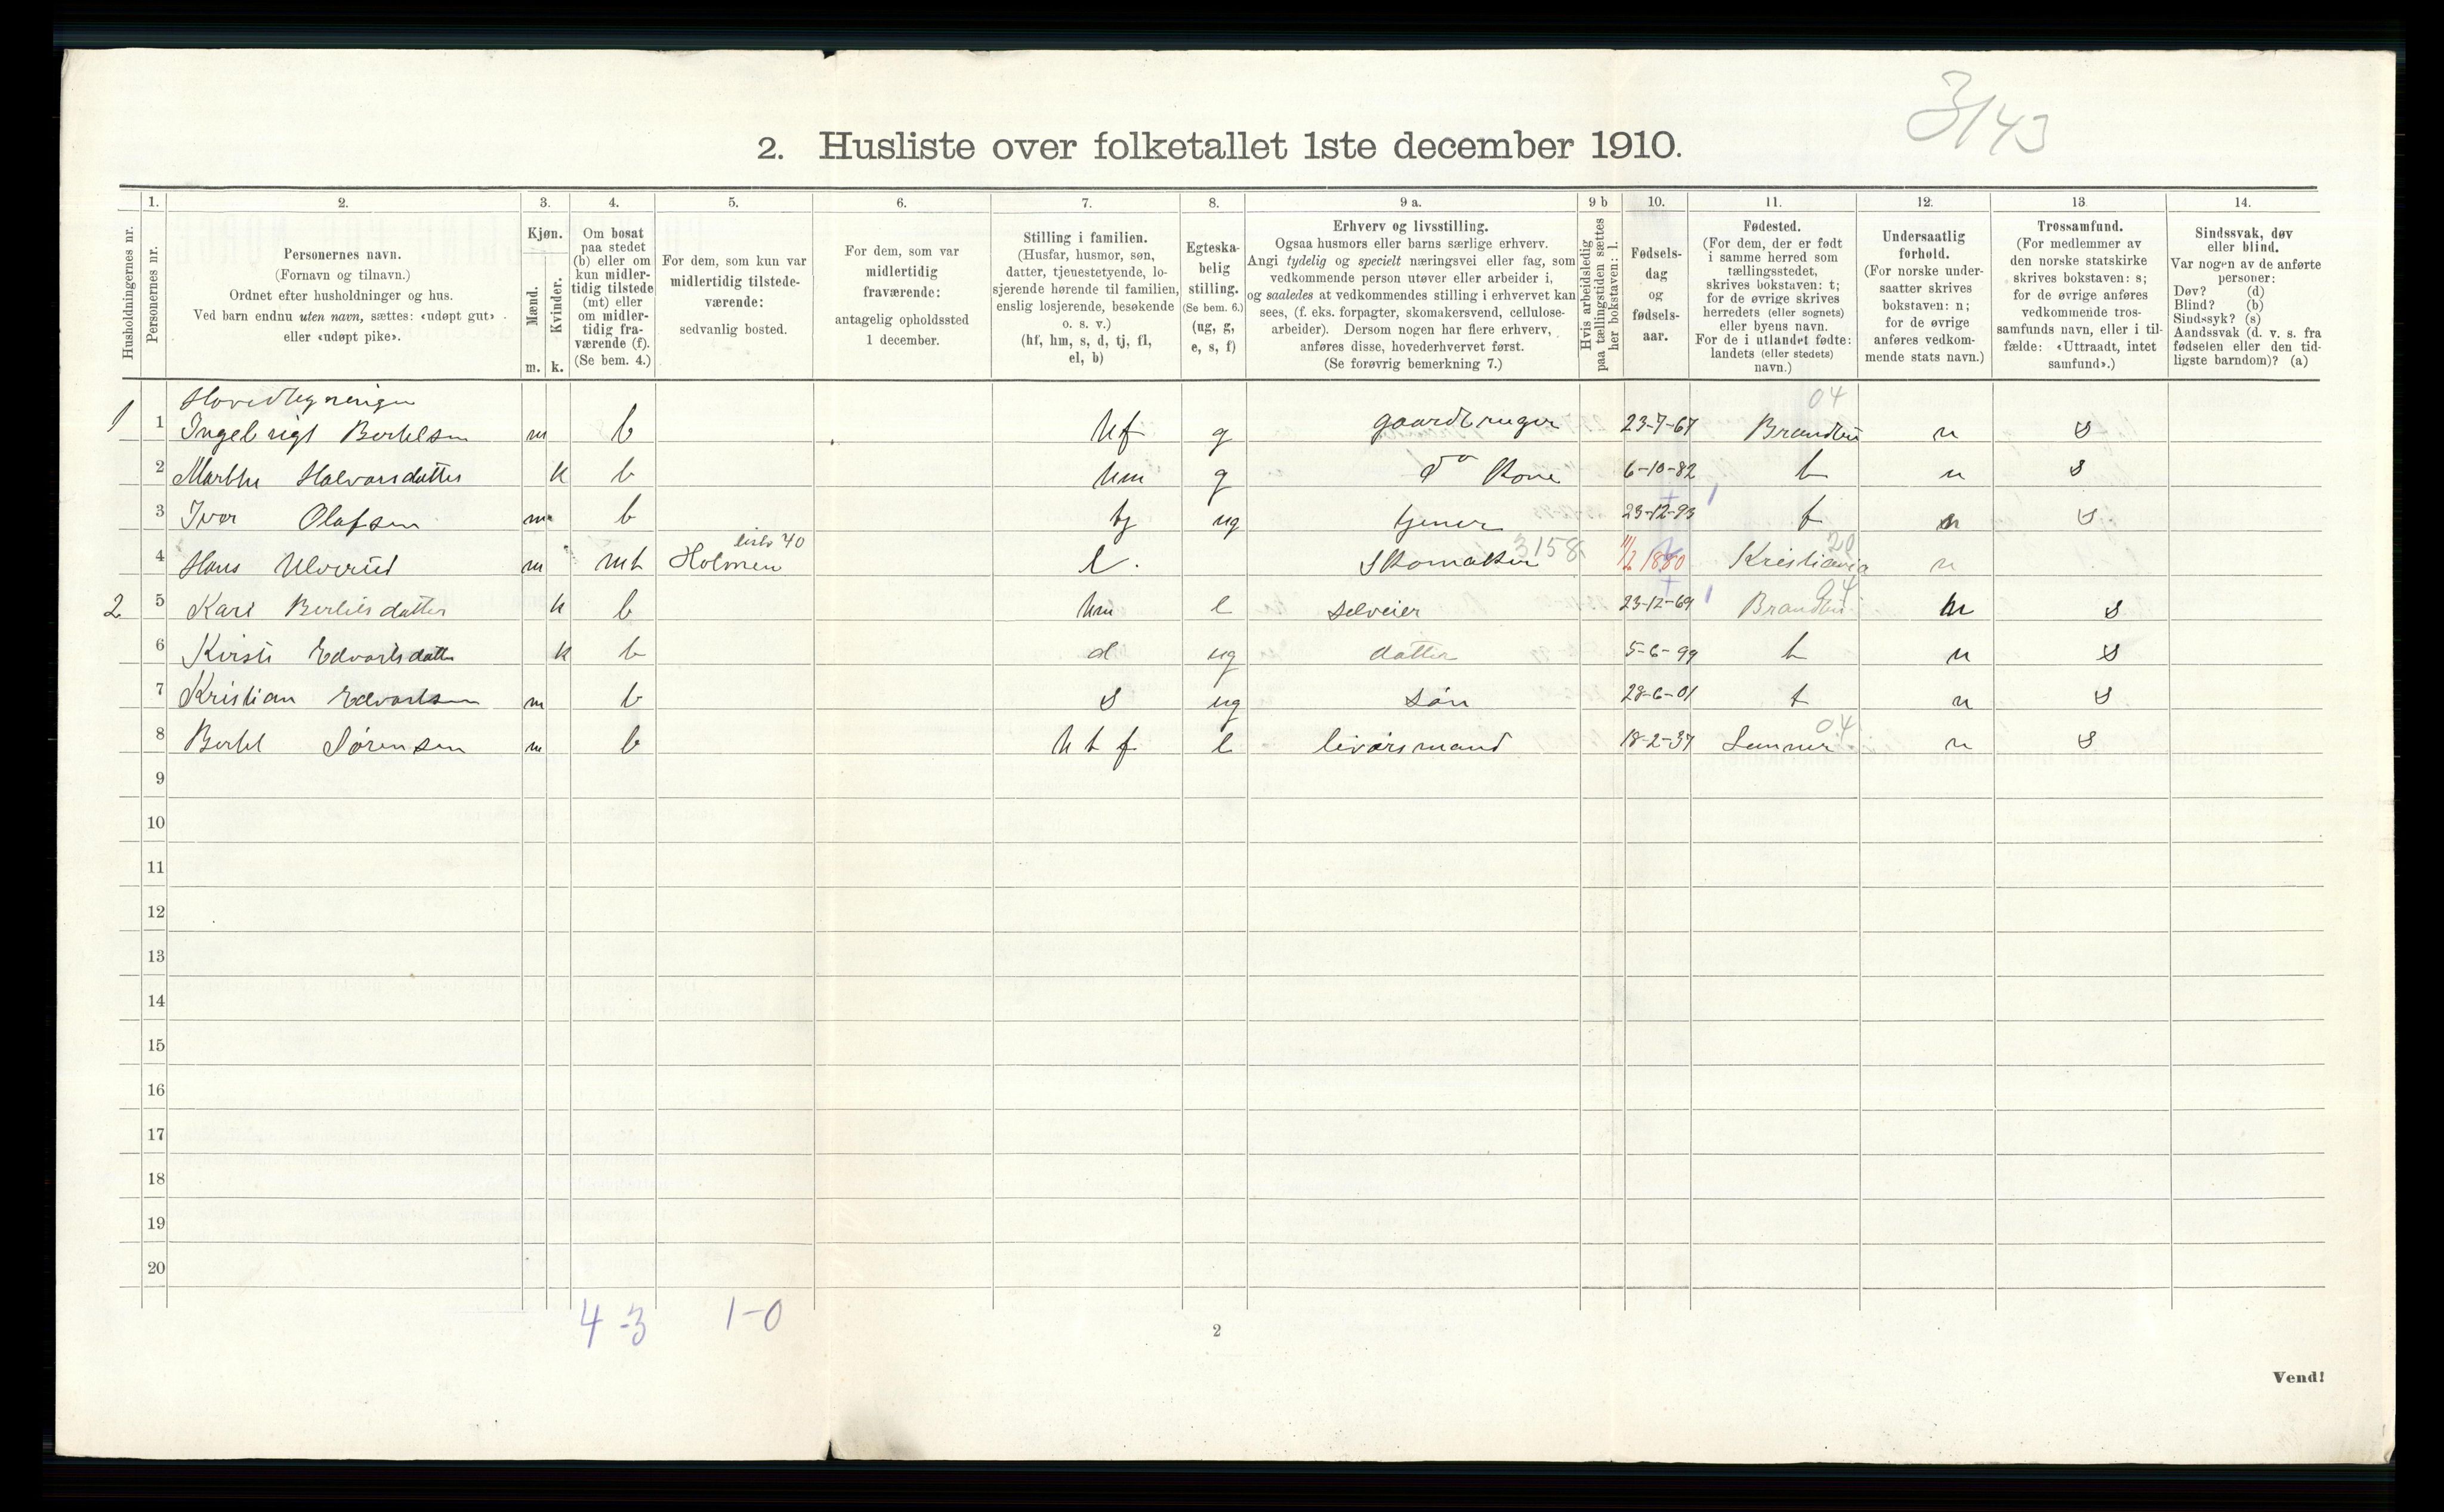 3143
2. Husliste over folketallet 1ste december 1910.
Husholdningernes nr.
1.
Personernes nr.
2.
Personernes navn.
(Fornavn og tilnavn.)
Ordnet efter husholdninger og hus.
Ved barn endnu uten navn, sættes: «udøpt gut»
eller «udøpt pike».
3.
Kjøn.
Mænd.
Kvinder.
m. k.
4.
Om bosat
paa stedet
(b) eller om
kun midler-
tidig tilstede
(mt) eller
om midler-
tidig fra-
værende (f).
(Se bem. 4.)
5.
For dem, som kun var
midlertidig tilstede-
værende:
sedvanlig bosted.
6.
For dem, som var
midlertidig
fraværende:
antagelig opholdssted
1 december.
7.
Stilling i familien.
(Husfar, husmor, søn,
datter, tjenestetyende, lo-
sjerende hørende til familien,
enslig losjerende, besøkende
o. s. v.)
(hf, hm, s, d, tj, fl,
el, b)
8.
Egteska-
belig
stilling.
(Se bem. 6.)
(ug, g,
e, s, f)
9 a.
Erhverv og livsstilling.
Ogsaa husmors eller barns særlige erhverv.
Angi tydelig og specielt næringsvei eller fag, som
vedkommende person utøver eller arbeider i,
og saaledes at vedkommendes stilling i erhvervet kan
sees, (f. eks. forpagter, skomakersvend, cellulose-
arbeider). Dersom nogen har flere erhverv,
anføres disse, hovederhvervet først.
(Se forøvrig bemerkning 7.)
9 b
Hvis arbeidsledig
paa tællingstiden sættes
her bokstaven: l.
10.
Fødsels-
dag
og
fødsels-
aar.
11.
Fødested.
(For dem, der er født
i samme herred som
tællingsstedet,
skrives bokstaven: t;
for de øvrige skrives
herredets (eller sognets)
eller byens navn.
For de i utlandet fødte:
landets (eller stedets)
navn.)
12.
Undersaatlig
forhold.
(For norske under-
saatter skrives
bokstaven: n;
for de øvrige
anføres vedkom-
mende stats navn.)
13.
Trossamfund.
(For medlemmer av
den norske statskirke
skrives bokstaven: s;
for de øvrige anføres
vedkommende tros-
samfunds navn, eller i til-
fælde: «Uttraadt, intet
samfund».)
14.
Sindssvak, døv
eller blind.
Var nogen av de anførte
personer:
Døv? (d)
Blind? (b)
Sindssyk? (s)
Aandssvak (d. v. s. fra
fødselen eller den tid-
ligste barndom)? (a)
Hovedbygningen 04
1 1 Ingebrigt Bertelsen m b hf g gaardbruger 23-7-67 Brandbu n s
2 Marthe Halvorsdatter k b hm g do Kone 6-10-82 t n s
3 Iver Olafsen m b tj ug tjener 23-12-93 t n s
liste 40 3158 20
4 Hans Ulverud m mt Holmen l. Skomaker 11/2 1880 Kristiania n
04
2 5 Kari Bertelsdatter k b hm e selveier 23-12-69 Brandbu n s
6 Kirsti Edvartsdatter k b d ug datter 5-6-99 t n s
7 Kristian Edvartsen m b s ug søn 28-6-01 t n s
04
8 Bertel Sørensen m b htf e livørsmand 18-2-37 Lunner n s
9
10
11
12
13
14
15
16
17
18
19
20
4-3 1-0
2
Vend!